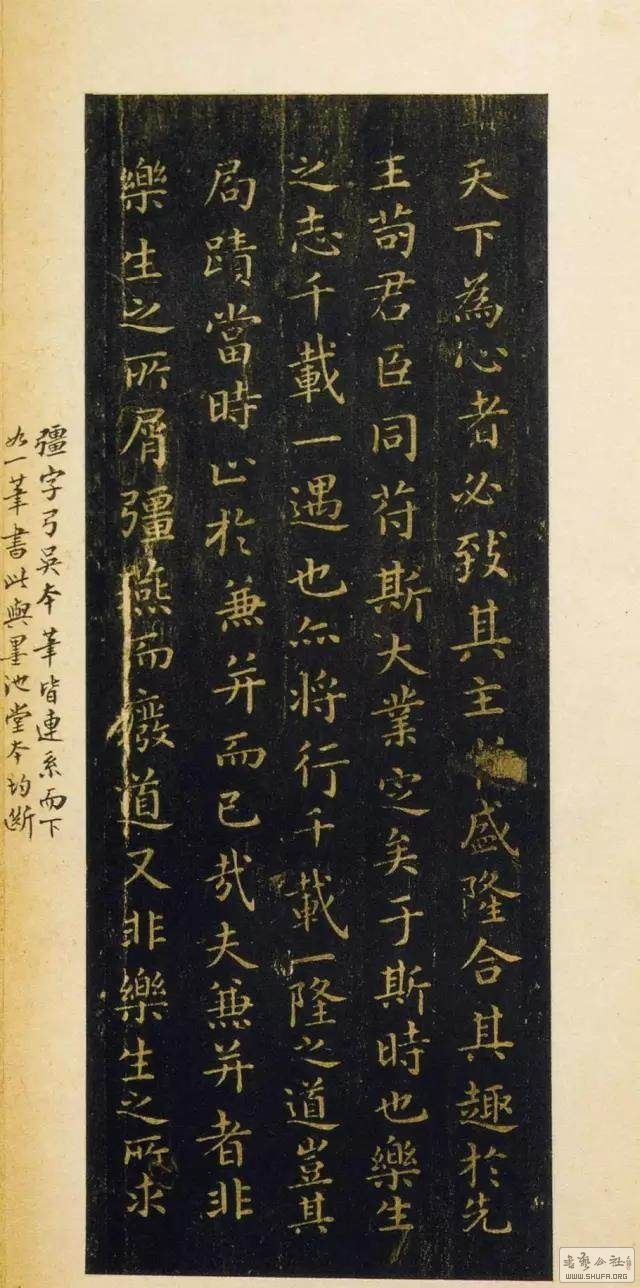 天下為心者必致其主盛隆合其趣於先
王苟君臣同符斯大業定矣于斯時也樂生
之志千載一遇也亦將行千載一隆之道豈其
局蹟當時止於兼并而已哉夫兼并者非
樂生之所屑彊燕而廢道又非樂生之所求
彊字弓吳本筆皆連系而下
如一筆書此與墨池堂本均斷
WWW.SHUFA.ORG